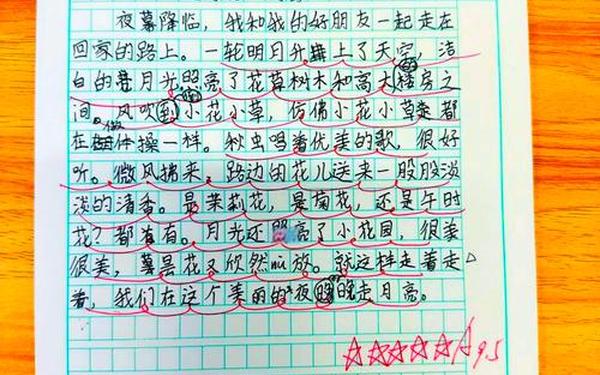 夜幕降临，我和我的好朋友一起走在
回家的路上。一轮明月升上了天空，洁
白的月光照亮了花草树木和高大的楼房之
间。风吹到小花小草，仿佛小花小草都
在做体操一样。秋虫唱着优美的歌，很好
听。微风拂来，路边的花儿送来一股股淡
淡的清香。是茉莉花，是菊花，还是午时
花？都有。月光还照亮了小花园，很美
很美，昙花又欣然怒放。就这样走着走
着，我们在这个美丽的夜晚走月亮。
☆☆☆☆☆A 95